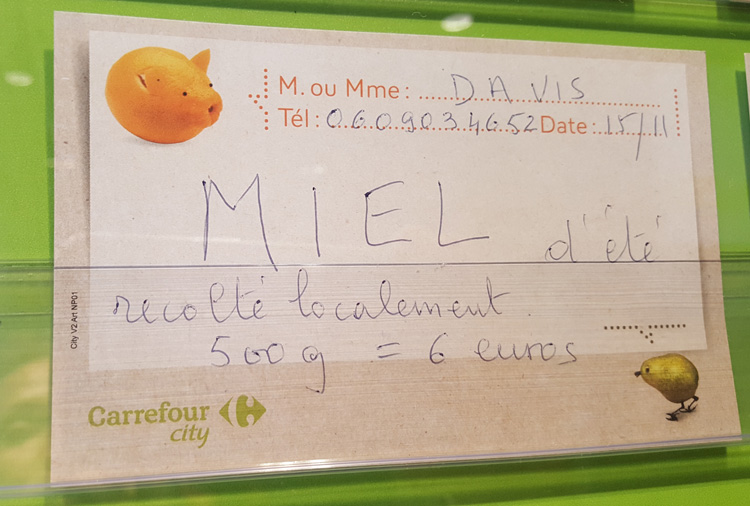 M. ou Mme : DAVIS
Tél : 0609034652 Date : 15/11
MIEL d'été
recolté localement.
500g = 6 euros
City V2 Art NP01
Carrefour
city